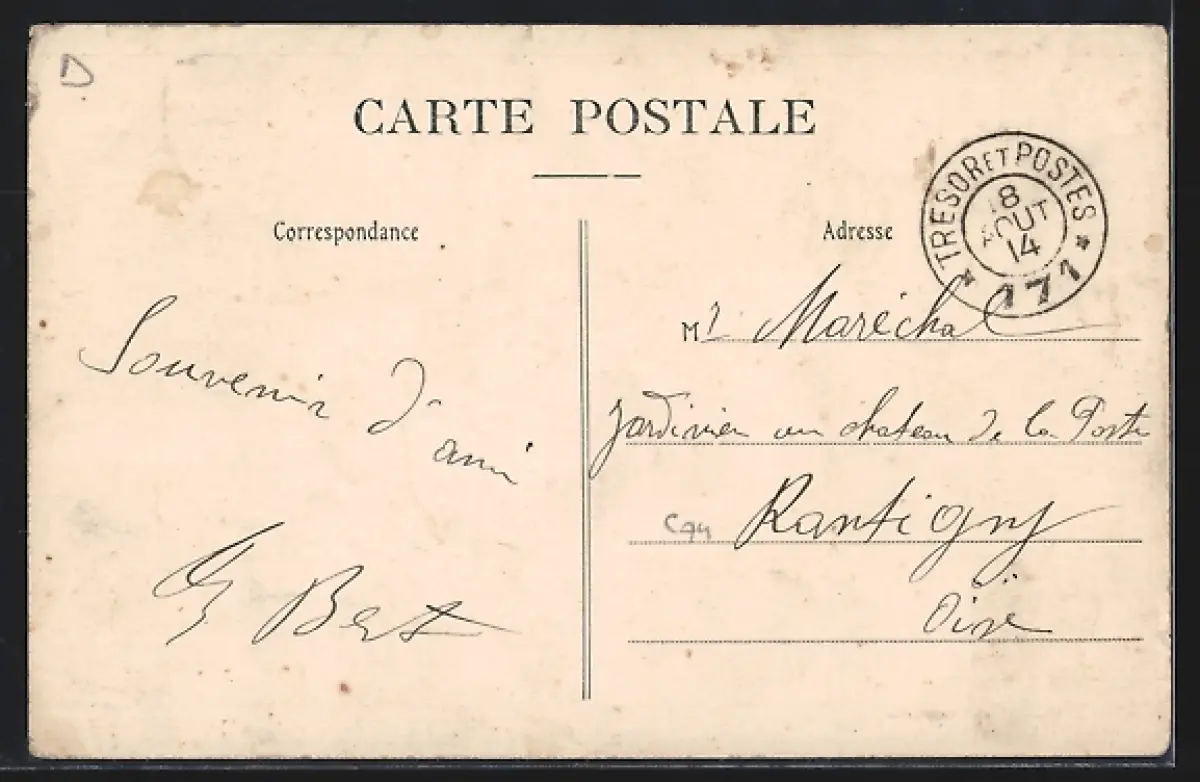 D
CARTE POSTALE
TRESOR ET POSTES
18
AOUT
14
* 171 *
Correspondance
Adresse
Souvenir d'
ami
Bert
Mr Maréchal
Jardinier au chateau de la Poste
Rantigny
Oise